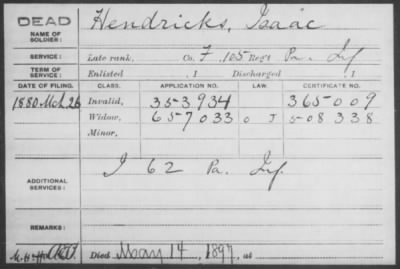 DEAD
NAME OF SOLDIER:
Hendricks, Isaac
SERVICE:
Late rank, Co. F, 105 Reg't Pa. Inf
TERM OF SERVICE:
Enlisted , 1 Discharged , 1
DATE OF FILING. CLASS. APPLICATION NO. LAW. CERTIFICATE NO.
1880 Mch 26 Invalid, 353934 365009
Widow, 657033 O J 508338
Minor,
ADDITIONAL SERVICES:
I 62 Pa. Inf.
REMARKS:
Died May 14, 1897, at